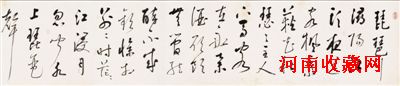 琵琶行
潯陽江
頭夜送
客楓葉
荻花秋
瑟瑟主人
下馬客
在船舉
酒欲飲
無管絃
醉不成
歡慘將
別別時茫
江浸月
忽聞水
上琵琶
聲
www.napai.cn